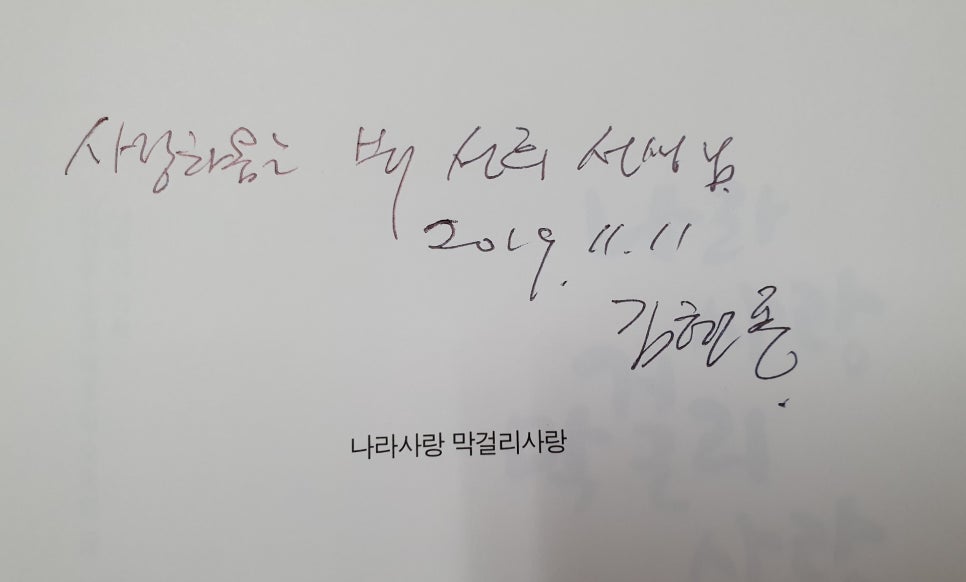 사랑하옵는 백 선희 선생님
2019. 11. 11
김현룡
나라사랑 막걸리사랑